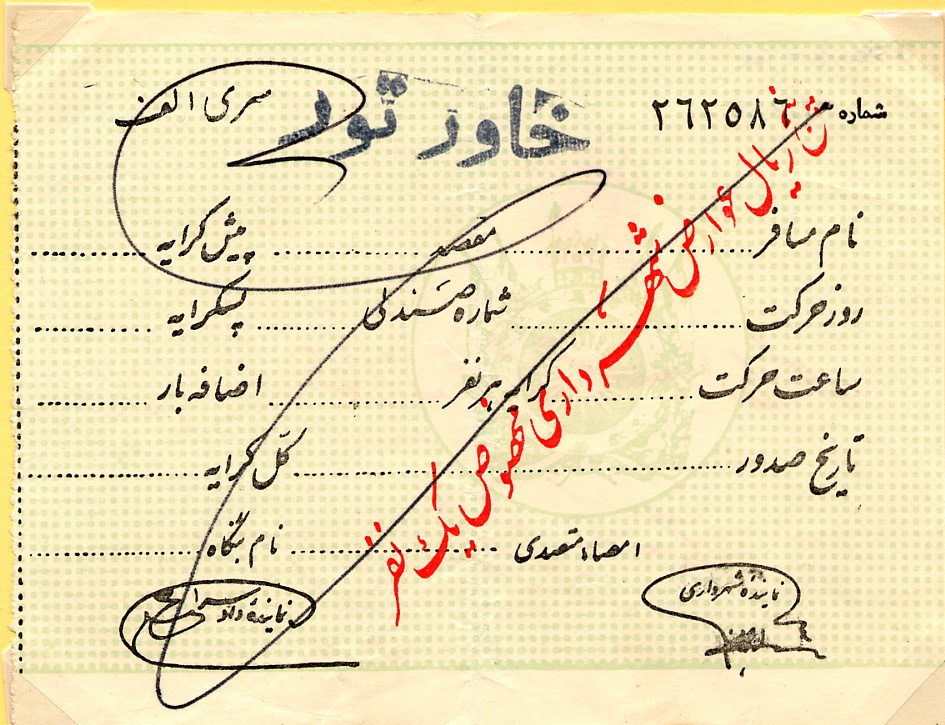 شماره ۲۶۲۵۸۶
خاور تور
سری الف
نام مسافر ........ مقصد ........ پیش کرایه ........
روز حرکت ........ شماره صندلی ........ پسکرایه ........
ساعت حرکت ........ کرایه هر نفر ........ اضافه بار ........
تاریخ صدور ........ کل کرایه ........
امضاء متصدی ........ نام بنگاه ........
نماینده شهرداری
نماینده دادسرا
ریال عوارض شهرداری مخصوص یک نفر